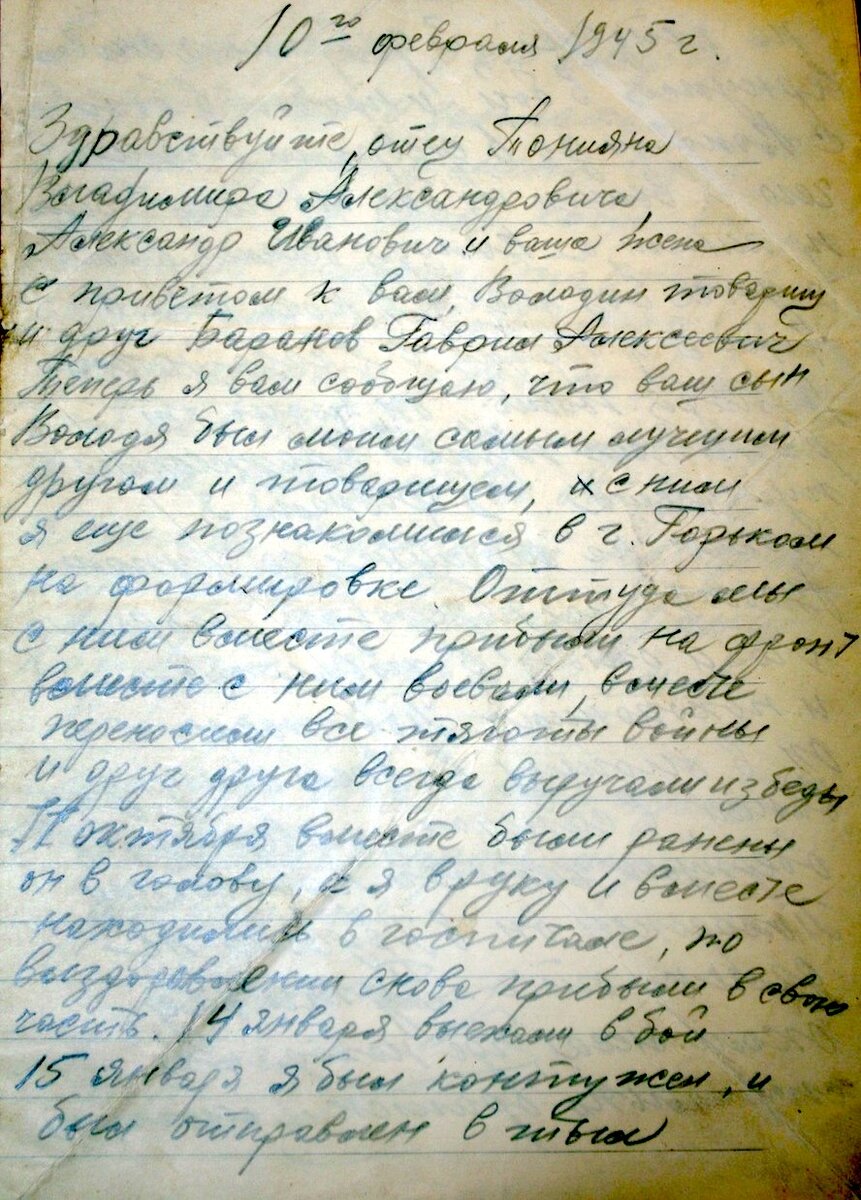 10го февраля 1945 г.
Здравствуйте, отец Тонияна
Владимира Александровича,
Александр Иванович и ваша жена
с приветом к вам, Володин товарищ
и друг Баранов Гаврил Алексеевич
Теперь я вам сообщаю, что ваш сын
Володя был моим самым лучшим
другом и товарищем, с ним
я еще познакомился в г. Горьком
на формировке. Оттуда мы
с ним вместе прибыли на фронт
вместе с ним воевали, вместе
переносили все тяготы войны
и друг друга всегда выручали из беды
11 октября вместе были ранены
он в голову, а я в руку и вместе
находились в госпитале, по
выздоровлении снова прибыли в свою
часть. 14 января выехали в бой
15 января я был контужен, и
был отправлен в тыл